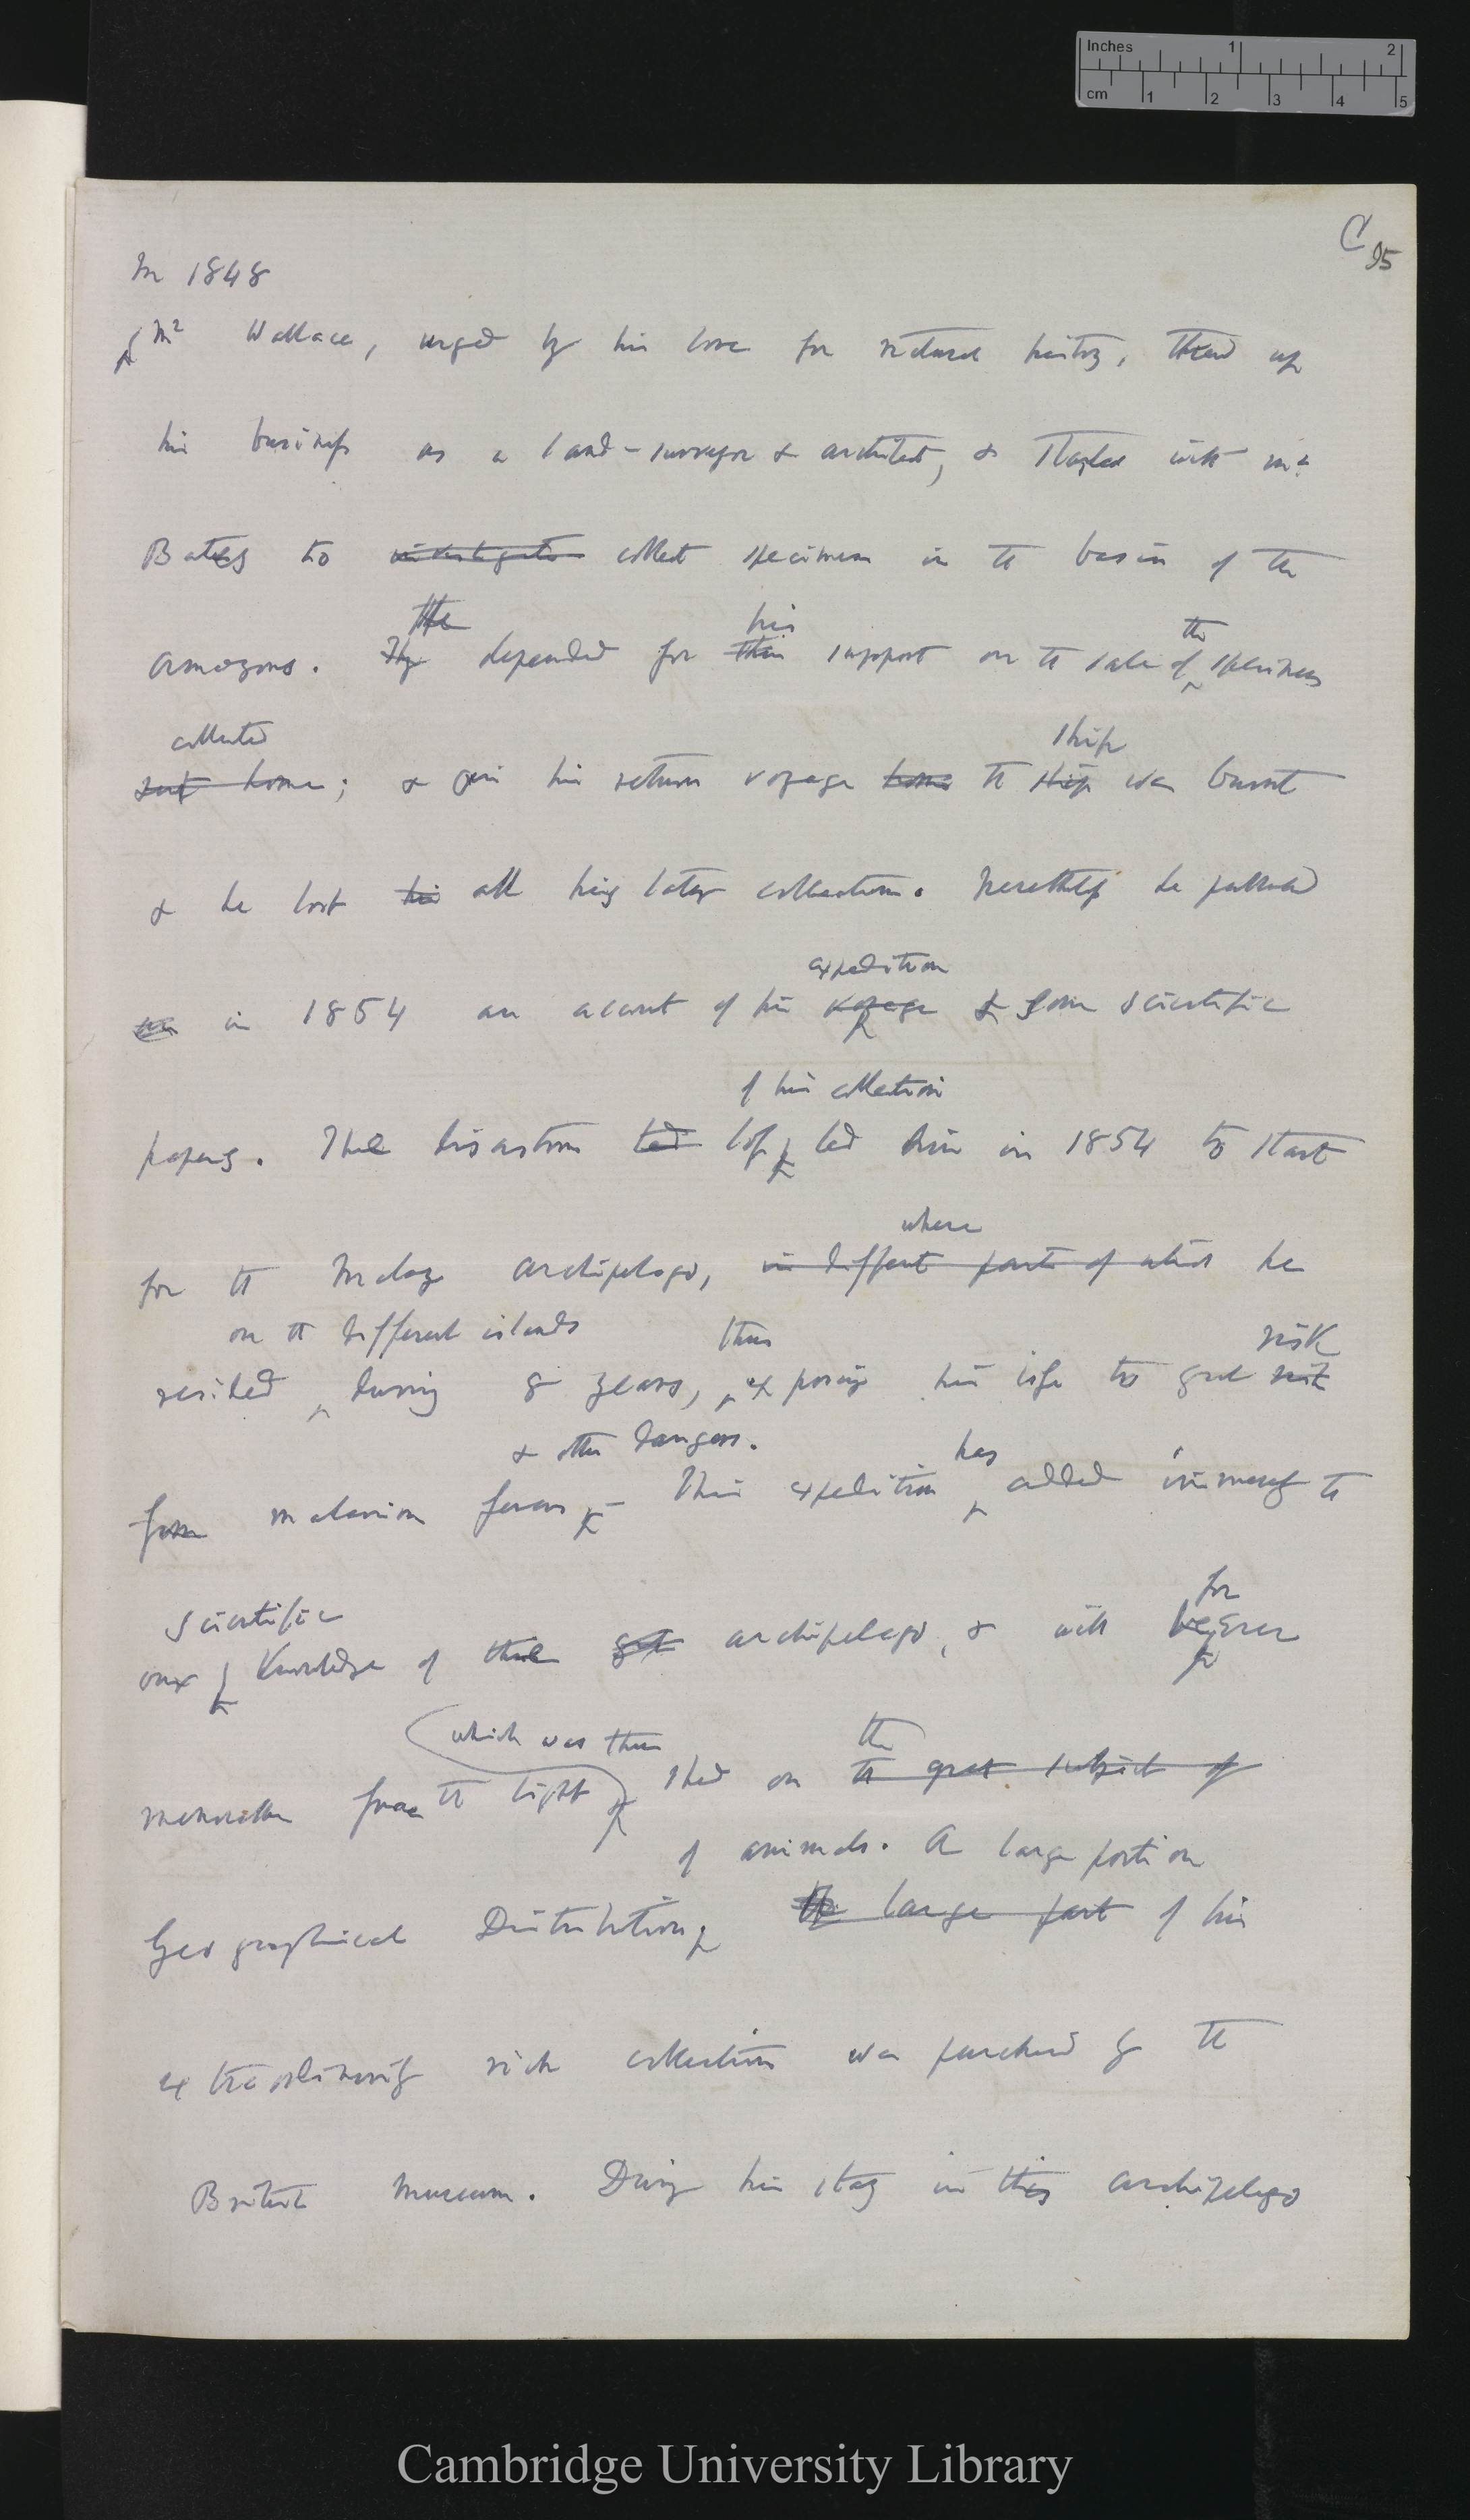 Inches 1 2
cm 1 2 3 4 5
C
95
In 1848
Mr Wallace, urged by his love for natural history, threw up
his business as a land-surveyor & architect, & started with Mr
Bates to investigate collect specimens in the basin of the
the his the
Amazons. They depended for their support on the sale of specimens
collected ship
sent home; & on his return voyage home the ship was burnt
& he lost his all his later collections. Nevertheless he published
expedition
in 1854 an account of his voyage & some scientific
of his collection
papers. The disastrous led loss led him in 1854 to start
where
for the Malay archipelago, in different parts of which he
on the different islands thus risk
resided during 8 years, exposing his life to great risk
& other dangers. has
from malarian fevers – This expedition added immensely to
scientific for
our knowledge of this great archipelago, & will be ever
which was then the
memorable from the light shed on the great subject of
of animals. A large portion
Geographical Distribution, The large part of his
extraordinarily rich collections was purchased by the
British Museum. During his stay in this archipelago
Cambridge University Library